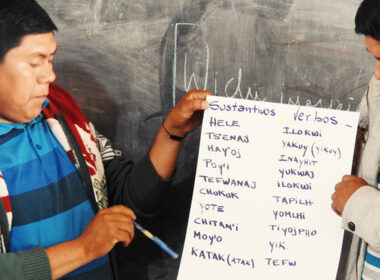 Sustantivos Verbos
HELE ILOKWi
TSENAJ YAKUY (YiKUY)
HAY'OJ INAYHIT
POY'i YUKWAJ
TEFWANAJ iLOKWi
CHOKOK TAPiLH
YOTE YOMLHi
CHiTAN'i TiYOJPHO
MOY'O YiK
KATAK (ATAK) TEFW